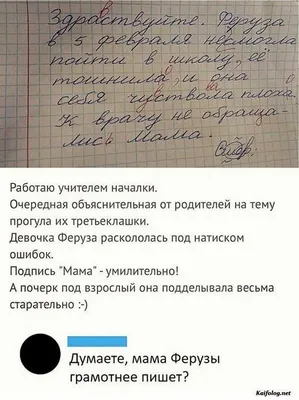 Здравствуйте. Феруза
в 5 февраля несмогла
пойти в школу, её
тошнила, и она
себя чуствола плоха.
К врачу не обраща-
лись Мама.
Работаю учителем началки.
Очередная объяснительная от родителей на тему
прогула их третьеклашки.
Девочка Феруза раскололась под натиском
ошибок.
Подпись "Мама" - умилительно!
А почерк под взрослый она подделывала весьма
старательно :-)
Думаете, мама Ферузы
грамотнее пишет?
Kaifolog.net